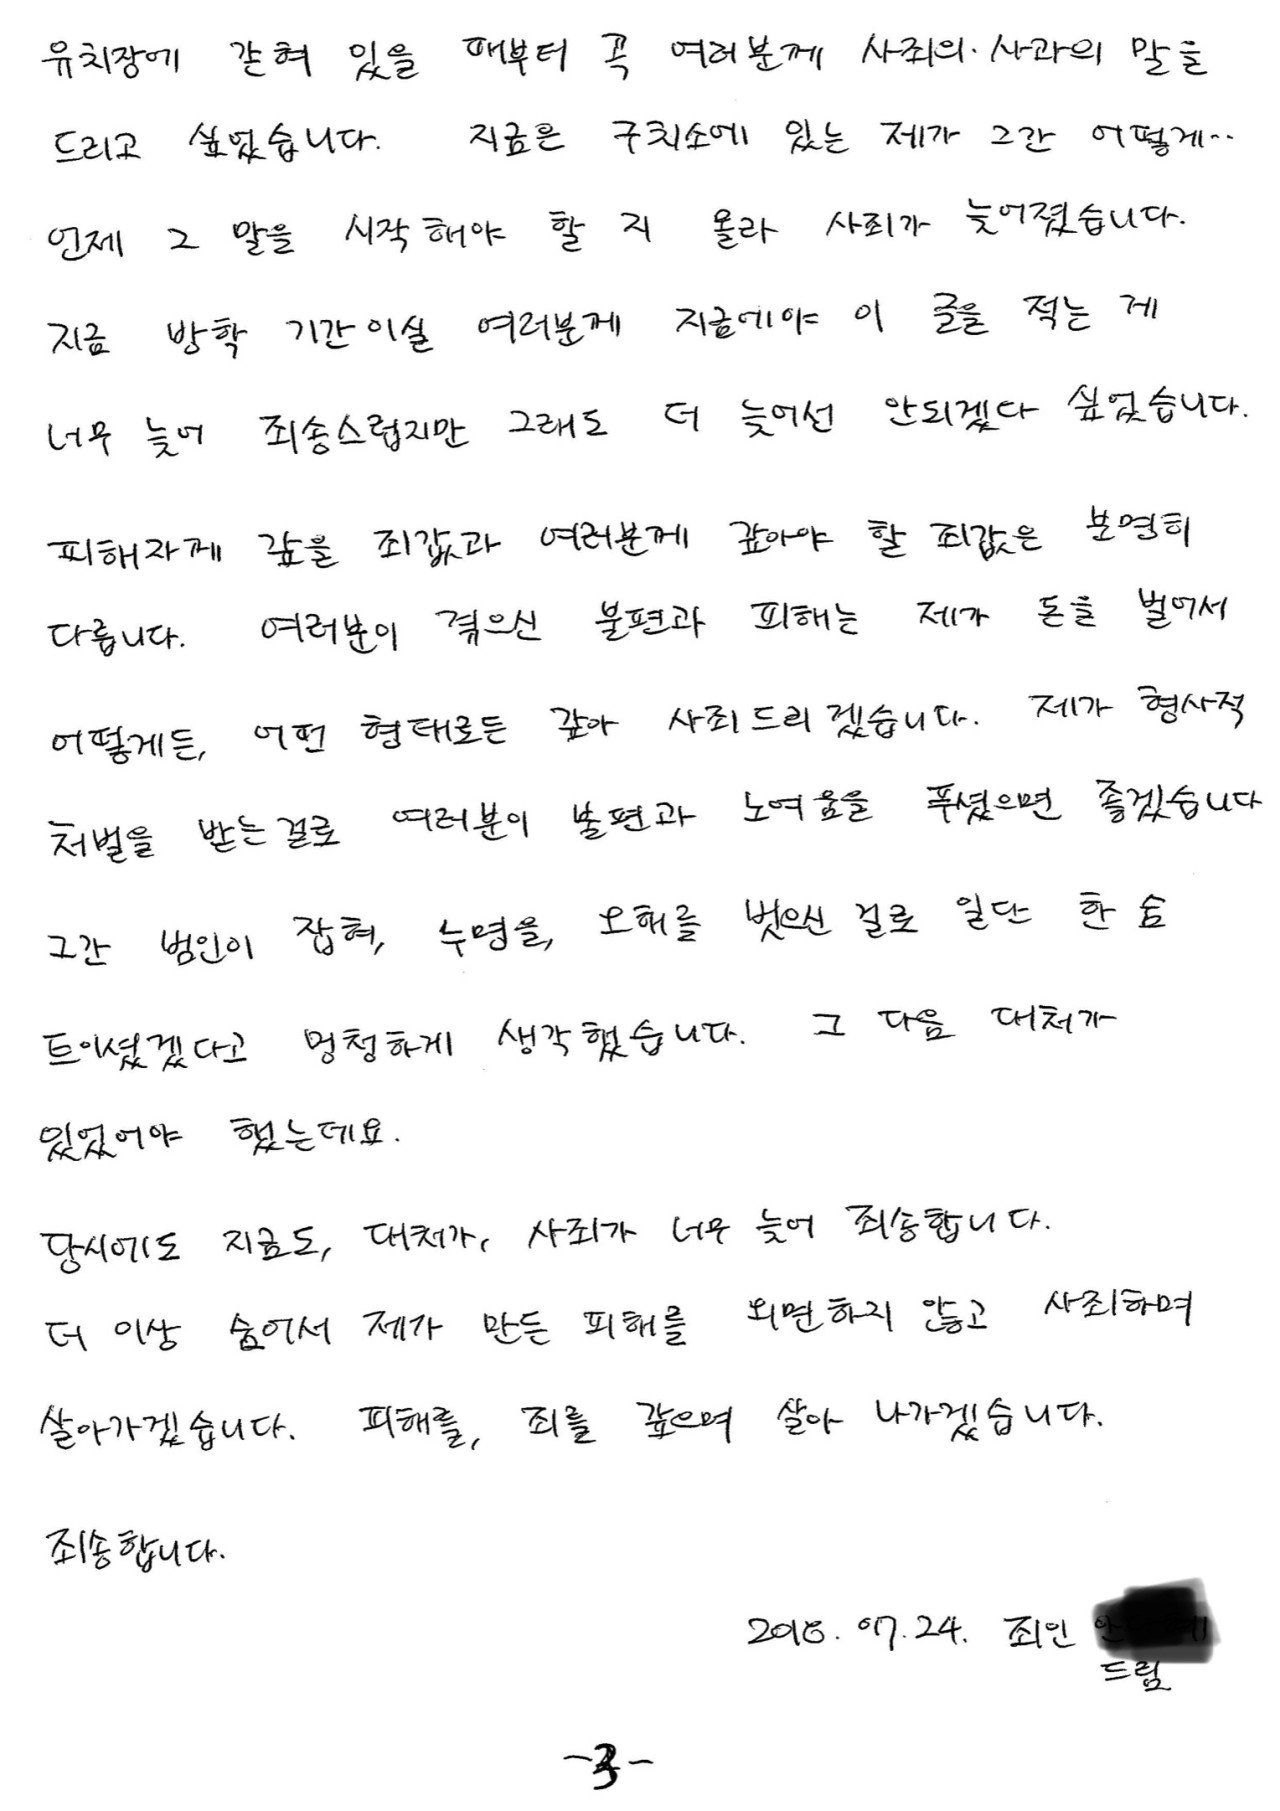 유치장에 갇혀 있을 때부터 꼭 여러분께 사죄의·사과의 말을
드리고 싶었습니다. 지금은 구치소에 있는 제가 그간 어떻게..
언제 그 말을 시작해야 할 지 몰라 사죄가 늦어졌습니다.
지금 방학 기간이실 여러분께 지금에야 이 글을 적는 게
너무 늦어 죄송스럽지만 그래도 더 늦어선 안되겠다 싶었습니다.
피해자께 갚을 죄값과 여러분께 갚아야 할 죄값은 분명히
다릅니다. 여러분이 겪으신 불편과 피해는 제가 돈을 벌어서
어떻게든, 어떤 형태로든 갚아 사죄드리겠습니다. 제가 형사적
처벌을 받는걸로 여러분이 불편과 노여움을 푸셨으면 좋겠습니다
그간 범인이 잡혀, 누명을, 오해를 벗으신 걸로 일단 한 숨
트이셨겠다고 멍청하게 생각했습니다. 그 다음 대처가
있었어야 했는데요.
당시에도 지금도, 대처가, 사죄가 너무 늦어 죄송합니다.
더 이상 숨어서 제가 만든 피해를 외면하지 않고 사죄하며
살아가겠습니다. 피해를, 죄를 갚으며 살아 나가겠습니다.
죄송합니다.
2018. 07. 24. 죄인
드림
-3-